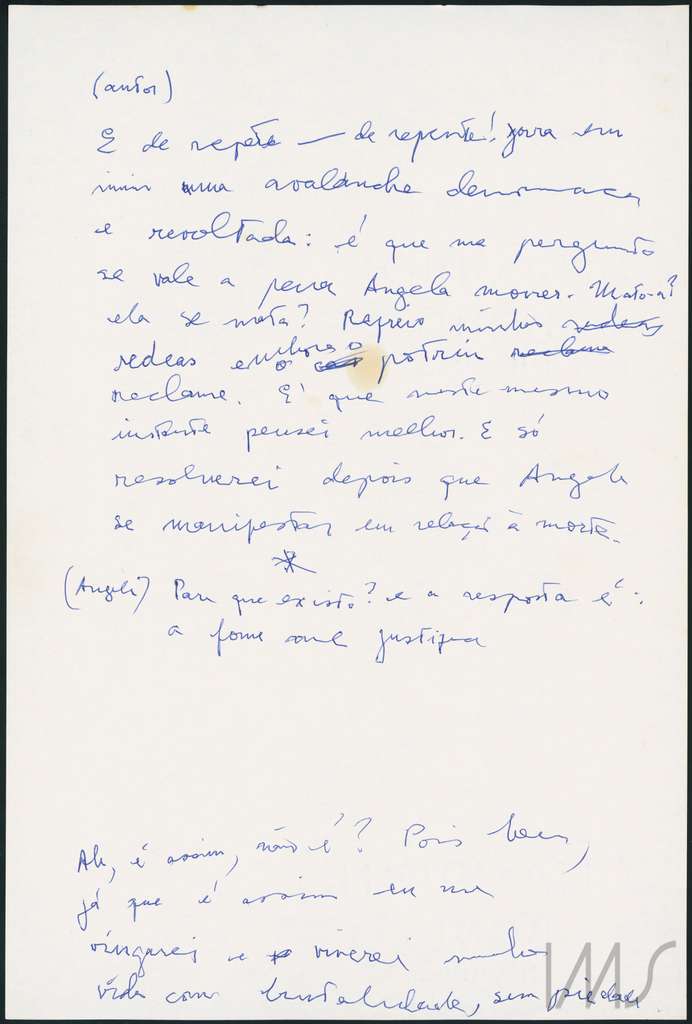 (autor)
E de repete — de repente! jorra em
mim uma avalanche
e revoltada: é que me pergunto
se vale a pena Angela morrer. Mato-a?
ela se mata? Refreio minhas redeas
redeas embora o potrin reclame
reclame. E' que neste mesmo
instante pensei melhor. E só
resolverei depois que Angela
se manifestar em relação à morte.
(Angela) Para que existo? e a resposta é:
a fome me justifica
Ah, é assim, não é? Pois bem,
já que é assim eu me
vingarei e viverei minha
vida com brutalidade, sem piedade
IMS